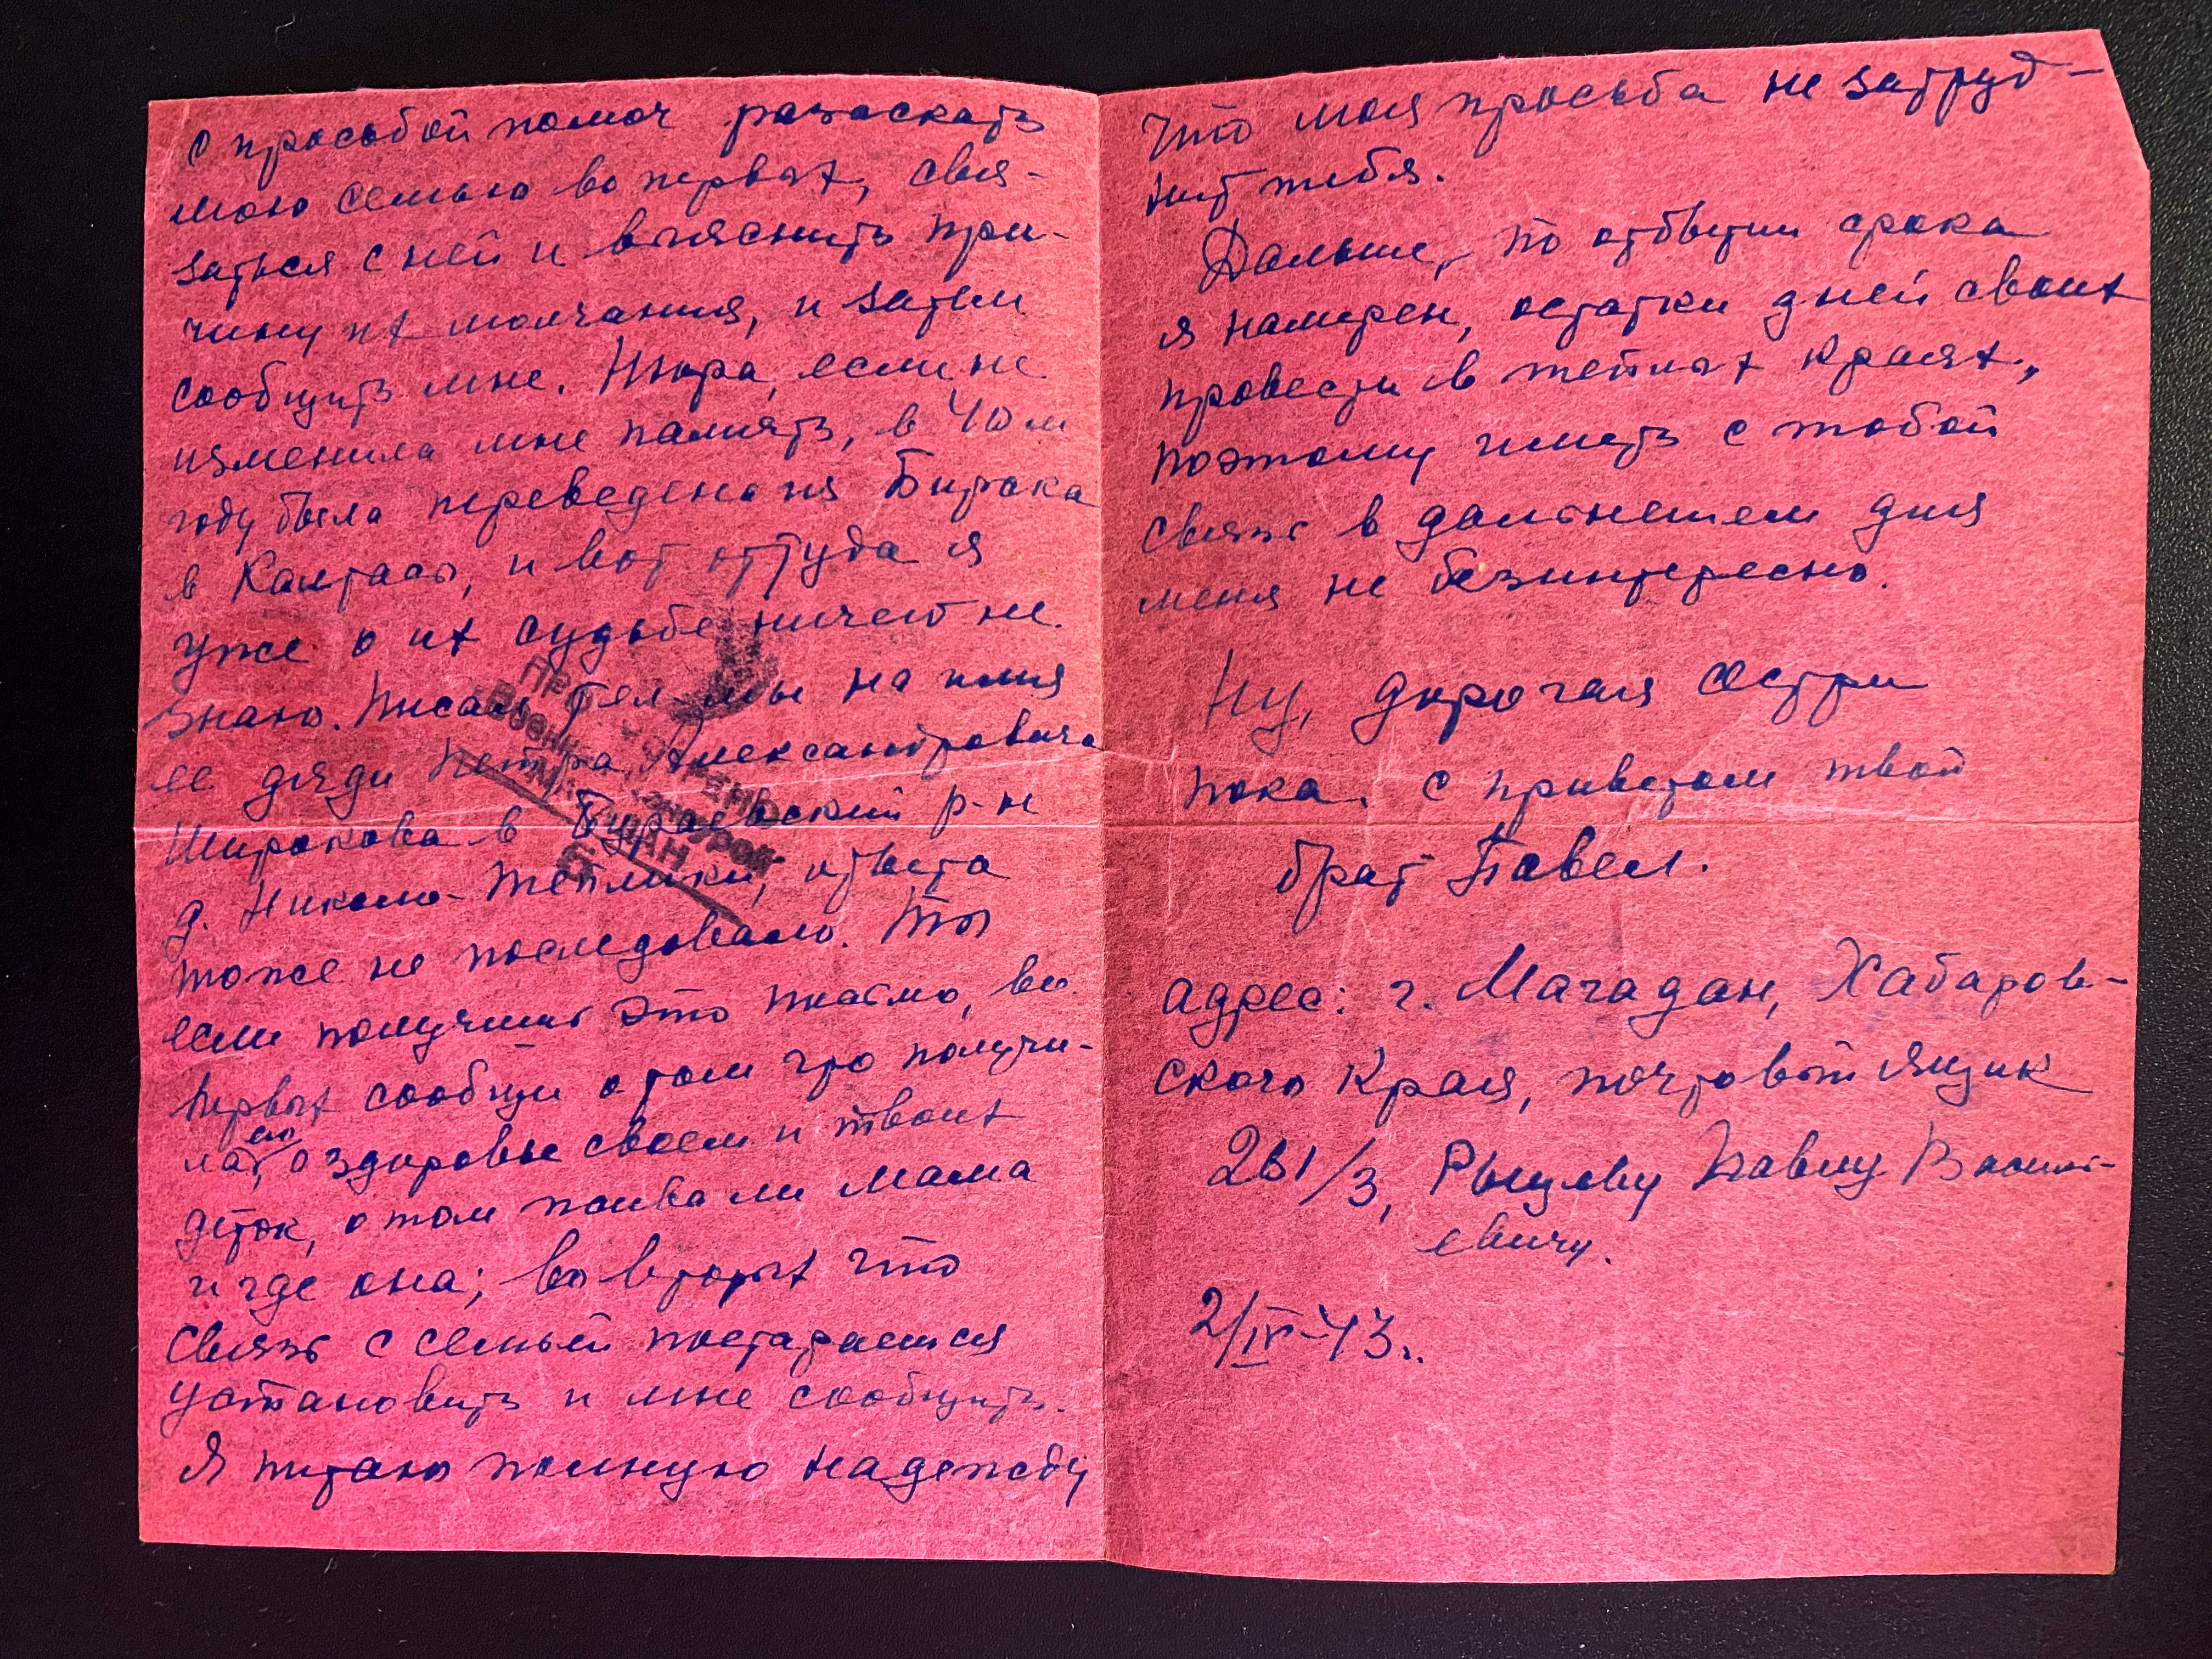 с прособой помоч разыскать
мою семью во первых, свя-
заться с ней и выяснить при-
чину их молчания, и затем
сообщить мне. Шура, если не
изменила мне память, в 40 м
году была переведена из Бирска
в Калтасы, и вот оттуда я
уже о их судьбе ничего не
знаю. Писал тел-мы на имя
ее дяди Петра Александровича
Широкова в Бураевский р-н
д. Николо-Теплики, ответа
тоже не последовало. Ты
если получишь это письмо, во
первых сообщи о том что получи-
ла его, о здоровье своем и твоих
деток, о том жива ли мама
и где она; во вторых что
связь с семьей постараешься
установить и мне сообщить.
Я питаю полную надежду
ПРОСМОТРЕНО
Военной Цензурой
МАГАДАН
что моя просьба не затруд-
нит тебя.
Дальше, по отбытии срока
я намерен, остатки дней своих
провести в теплых краях,
поэтому иметь с тобой
связь в дальнешем для
меня не безинтересно.
Ну, дорогая сестра
пока. С приветом твой
брат Павел.
адрес: г. Магадан, Хабаров-
ского Края, почтовый ящик
261/3, Павлу Василь-
евичу.
2/IV-43г.